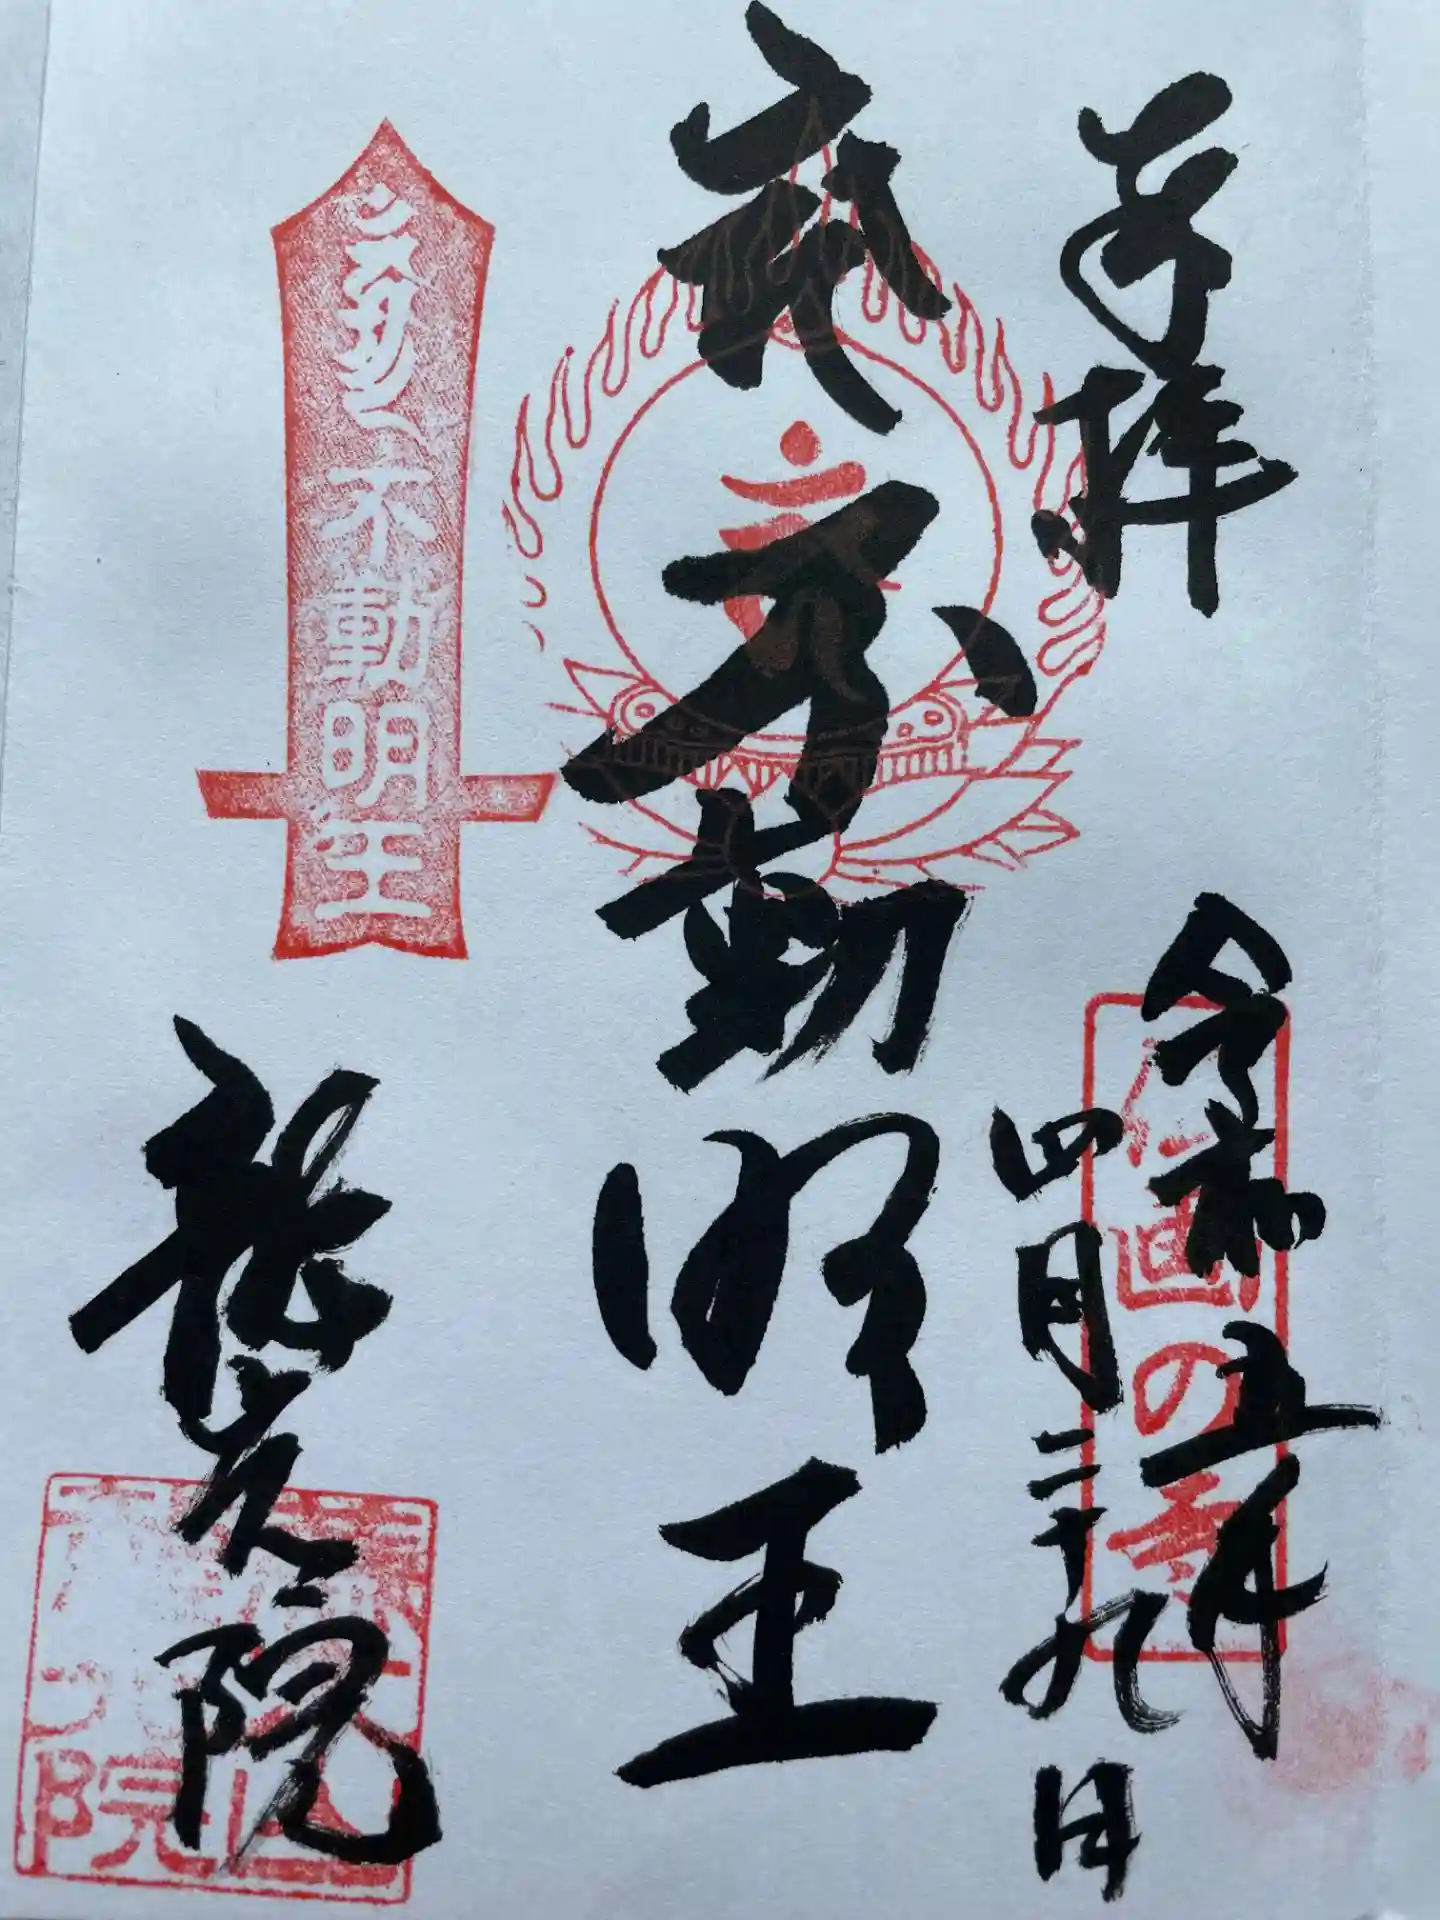 奉拝
令和五年
四月二十九日
仏画の寺
不動明王
不動明王
龍光院